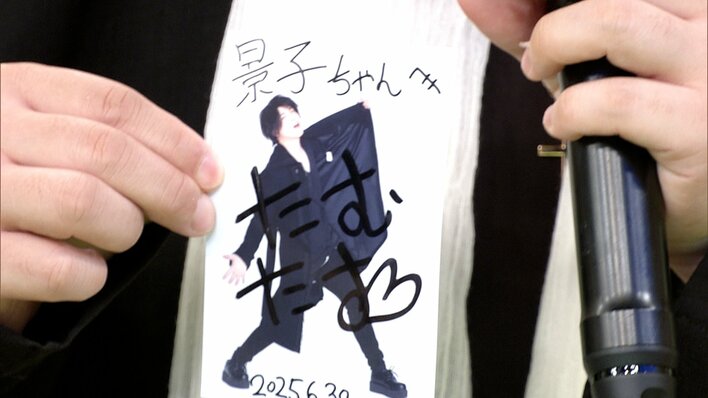 景子ちゃんへ
たむ
たむ
2025.6.30